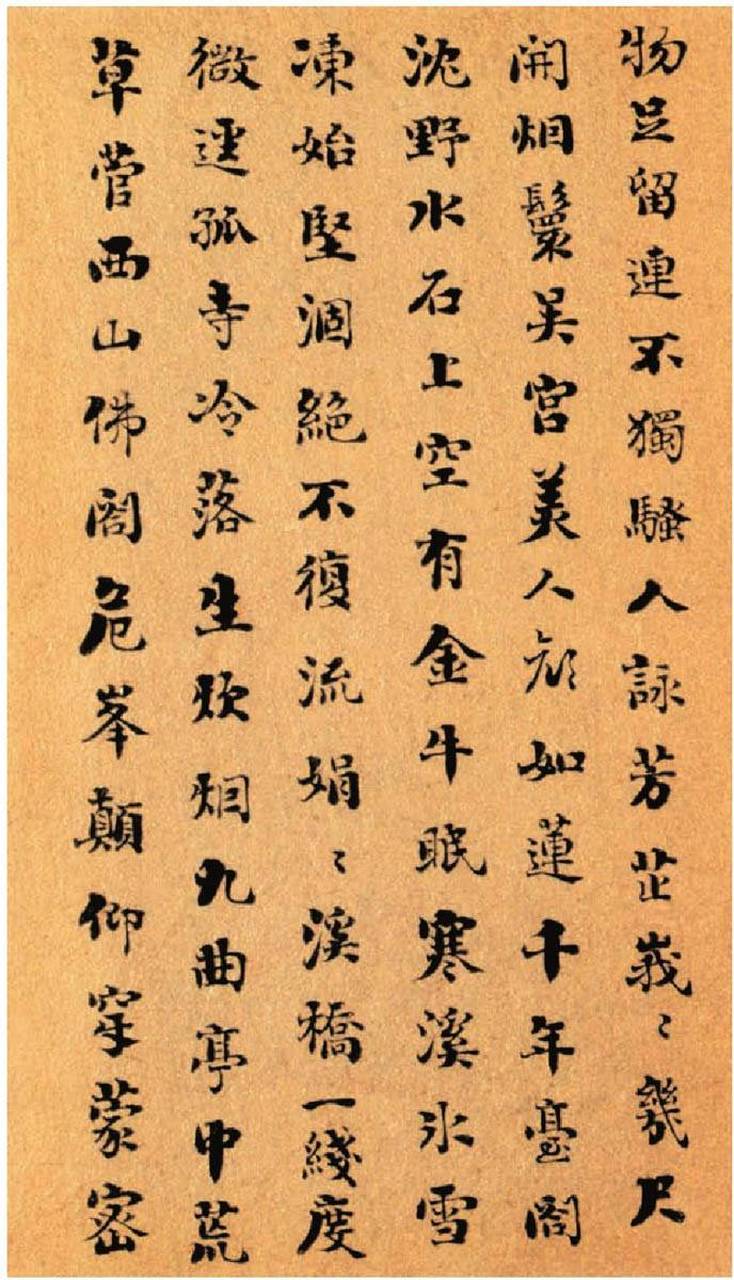 物足留連不獨騷人詠芳芷峩〻幾尺
開烟鬟吴宫美人顔如蓮千年臺閣
沈野水石上空有金牛眠寒溪氷雪
凍始堅涸絶不復流娟〻溪橋一綫度
微逕孤寺冷落生炊烟九曲亭中荒
草菅西山佛閣危峯顛仰穿蒙密